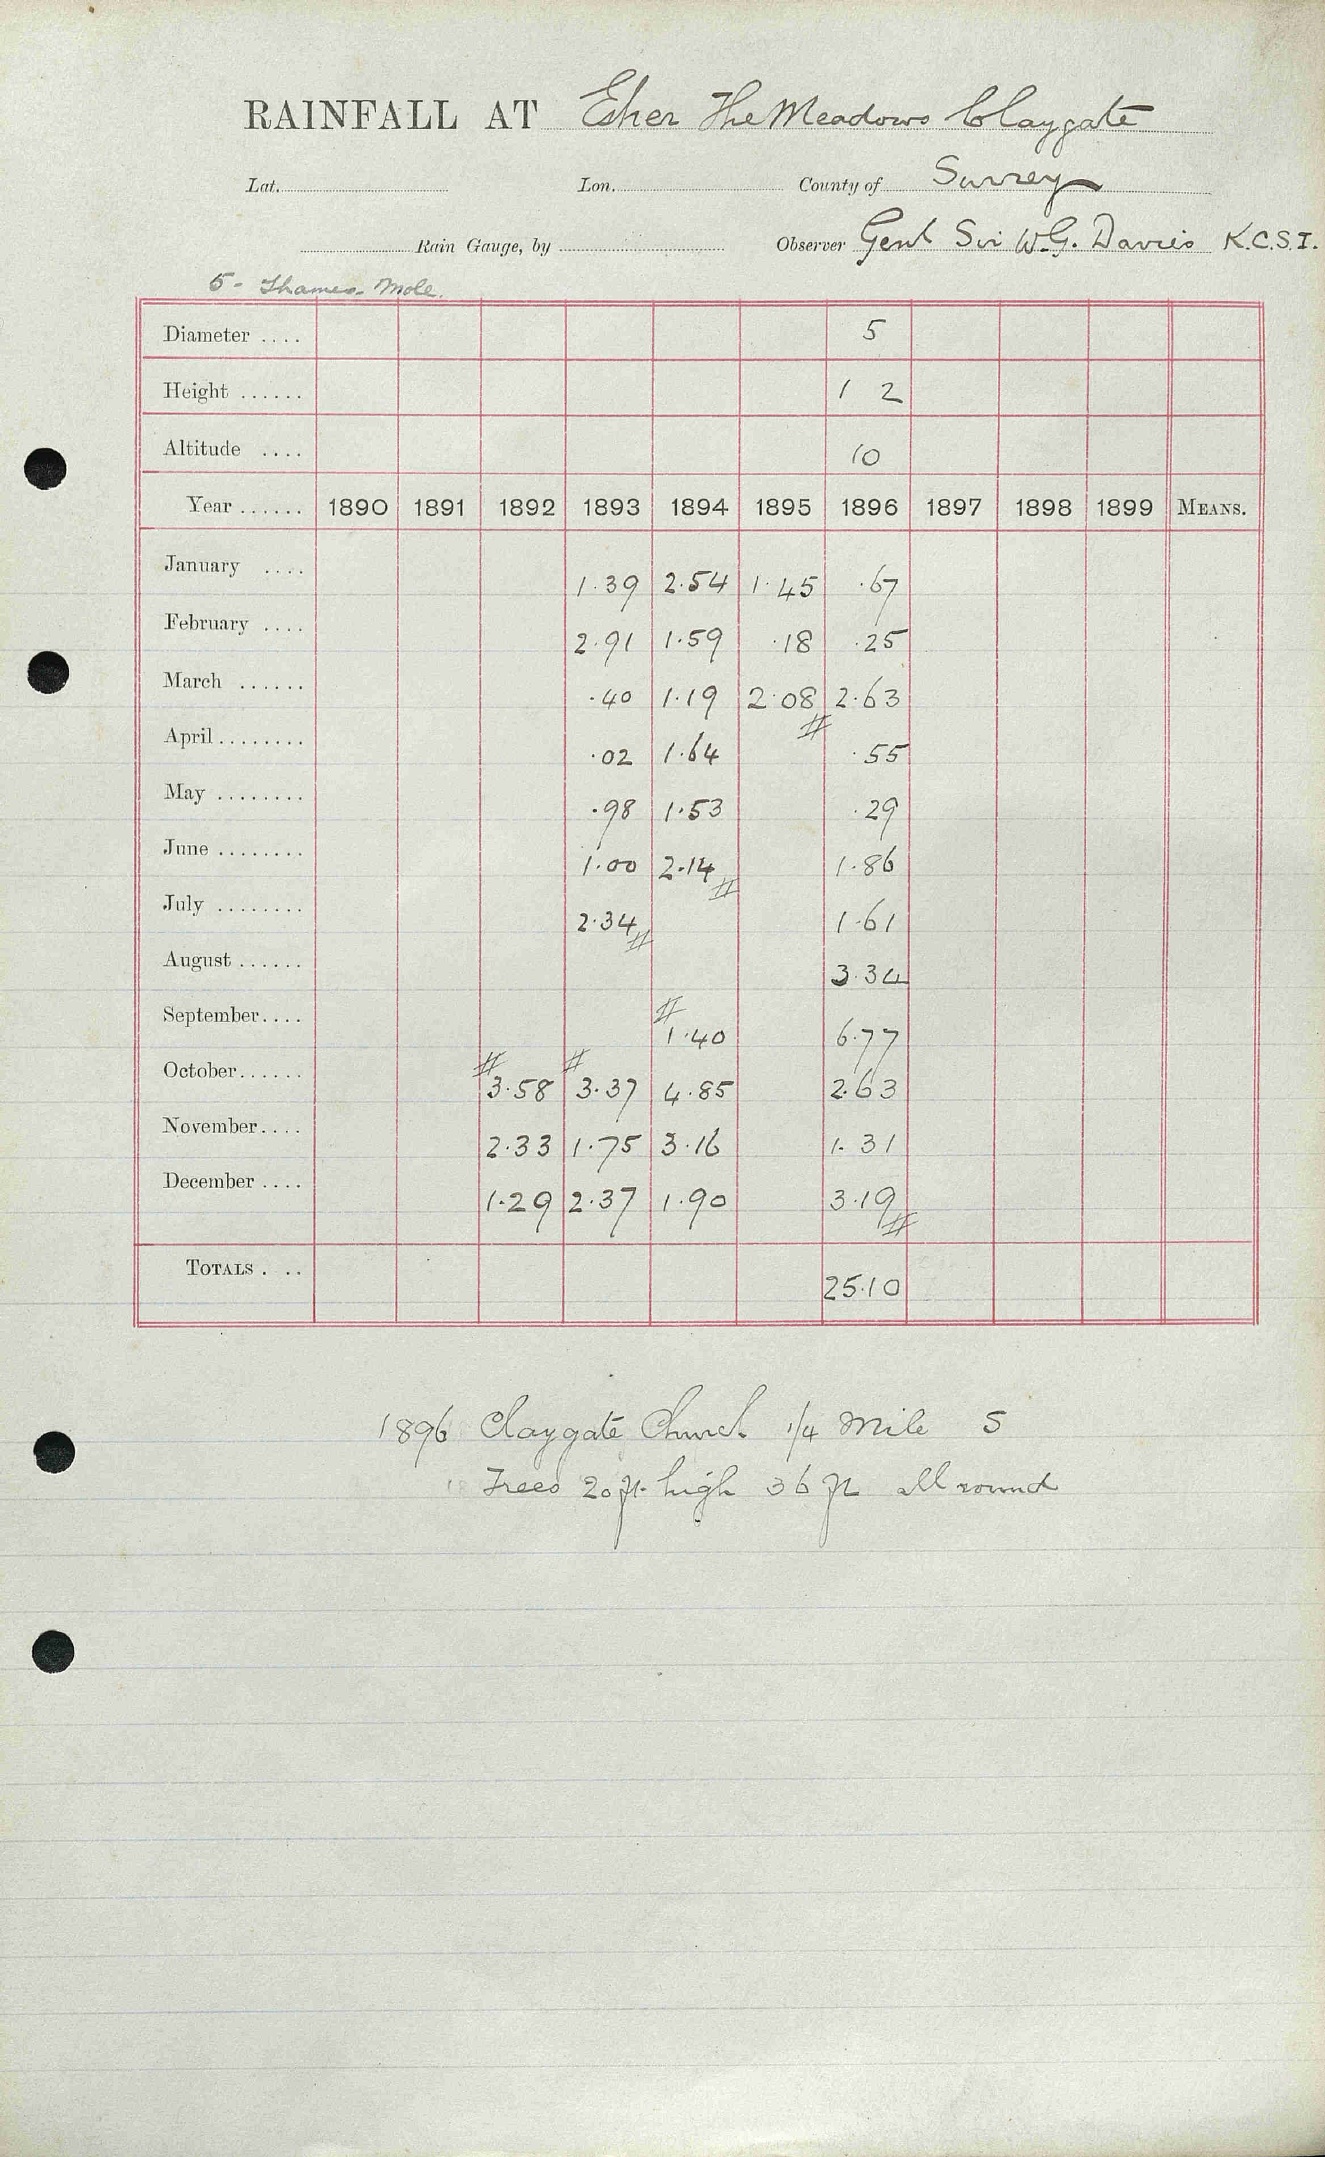 RAINFALL AT Esher The Meadows Claygate
Lat. Lon. County of Surrey
Rain Gauge, by Observer Genl Sir W.G. Davies K.C.S.I.
5 - Thames - Mole.
Diameter .... 5
Height ...... 1 2
Altitude .... 10
Year ...... 1890 1891 1892 1893 1894 1895 1896 1897 1898 1899 MEANS.
January .... 1.39 2.54 1.45 .67
February .... 2.91 1.59 .18 .25
March ...... .40 1.19 2.08 2.63
April ........ .02 1.64 .55
May ........ .98 1.53 .29
June ........ 1.00 2.14 1.86
July ........ 2.34 1.61
August ...... 3.34
September .... 1.40 6.77
October ...... 3.58 3.37 4.85 2.63
November .... 2.33 1.75 3.16 1.31
December .... 1.29 2.37 1.90 3.19
TOTALS . .. 25.10
1896 Claygate Church 1/4 Mile S
Trees 20 ft. high 36 ft all round